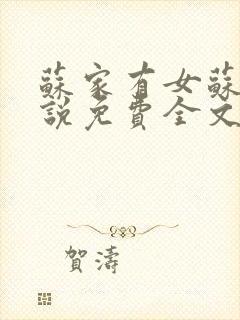 蘇家有女蘇
說免費全文
賀濤